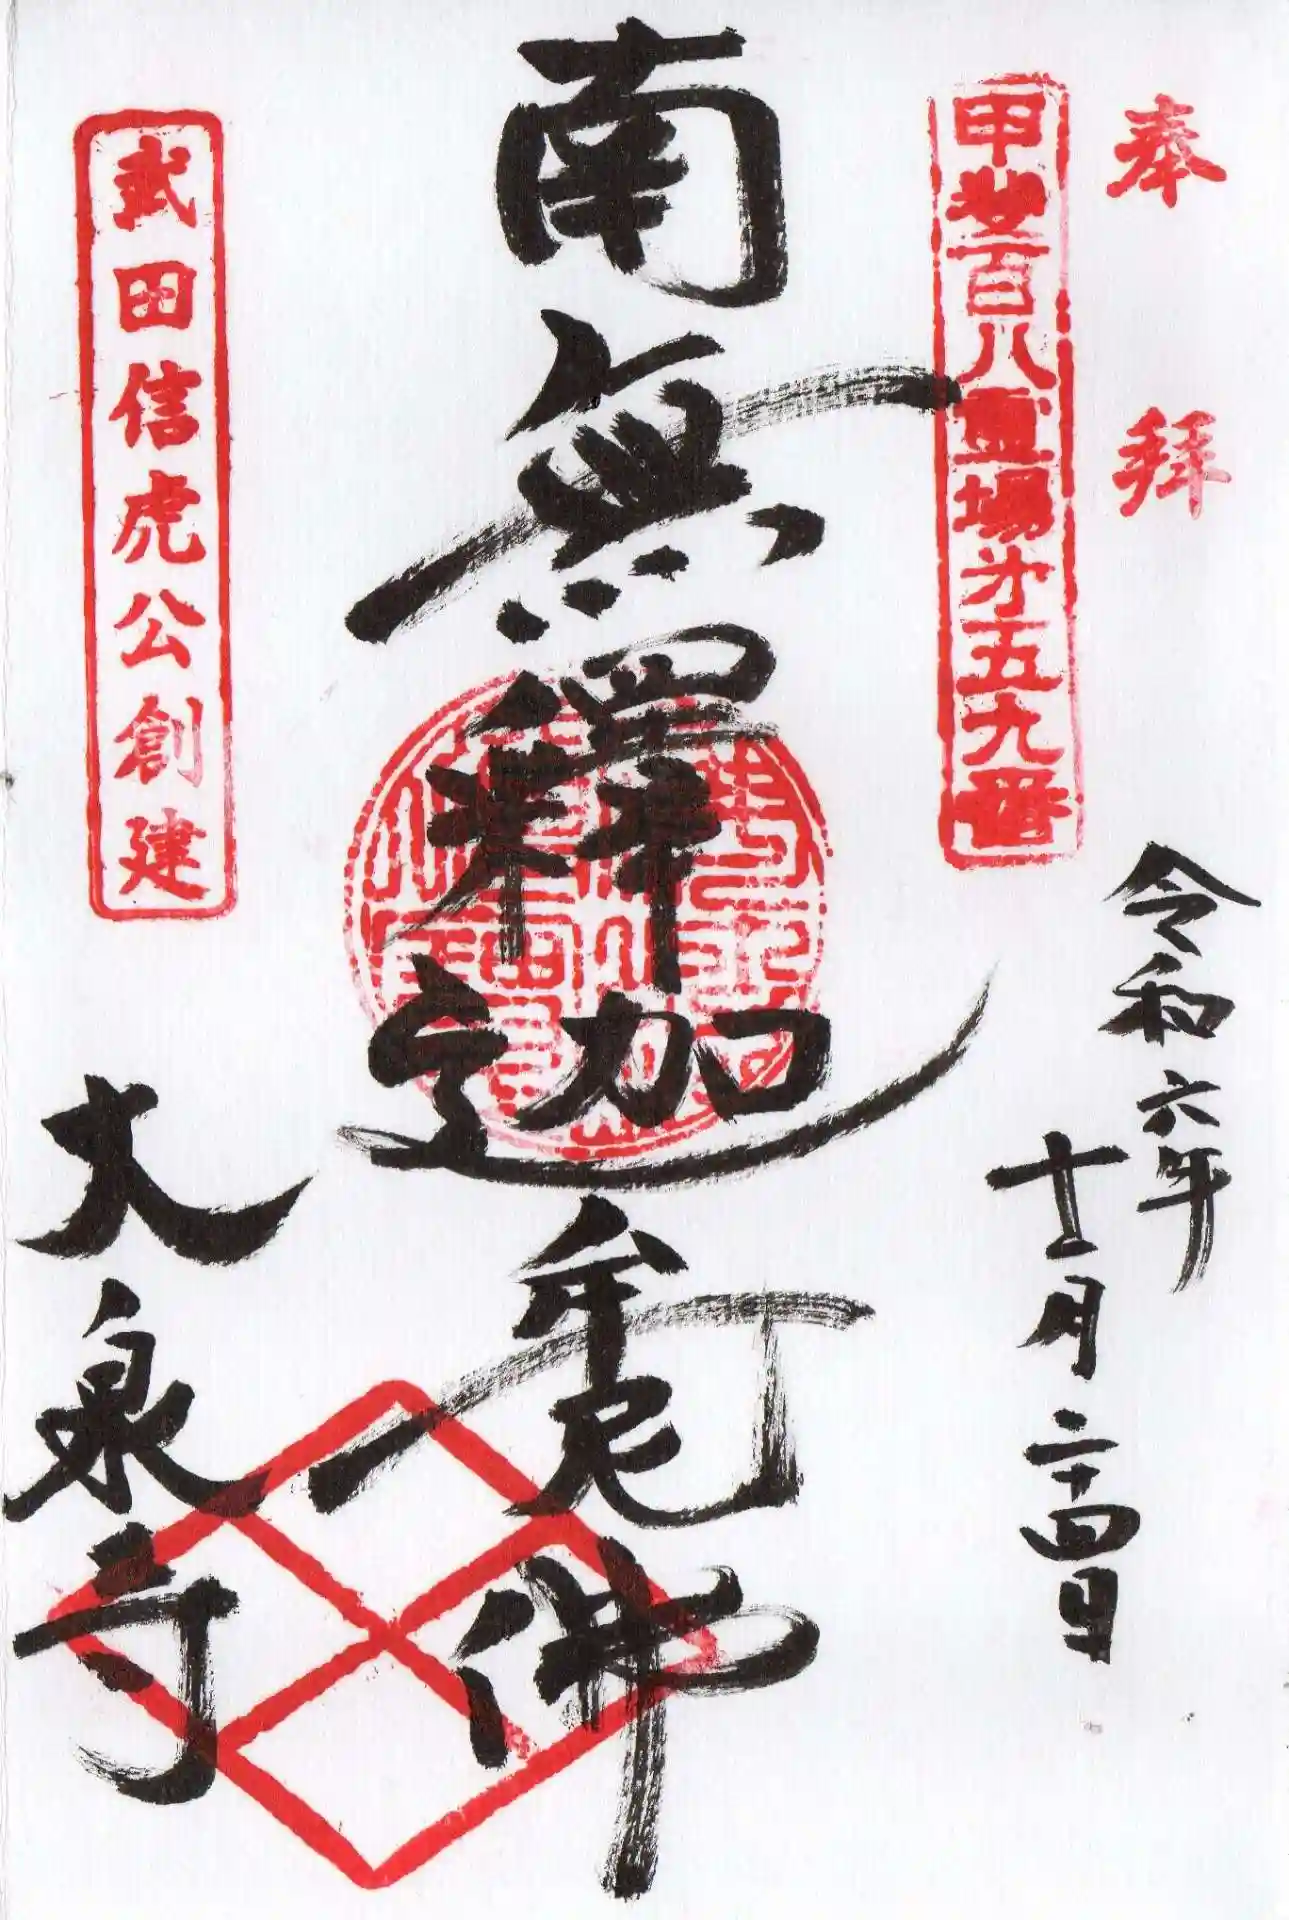 奉拜
甲斐百八霊場第五九番
令和六年
十二月二十四日
南無釋迦牟尼佛
武田信虎公創建
大泉寺